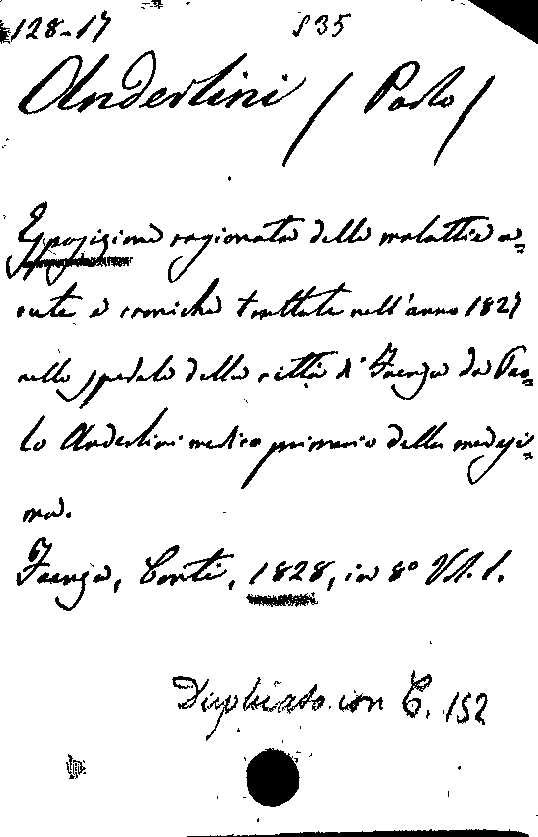 128-17 S35
Anderlini / Paolo /
Esposizione ragionata delle malattie a=
cute e croniche trattate nell'anno 1827
nello spedale della città di Faenza da Pao=
lo Anderlini medico primario della medesi=
ma.
Faenza, Conti, 1828, in 8° Vol. 1.
Duplicato con C. 152